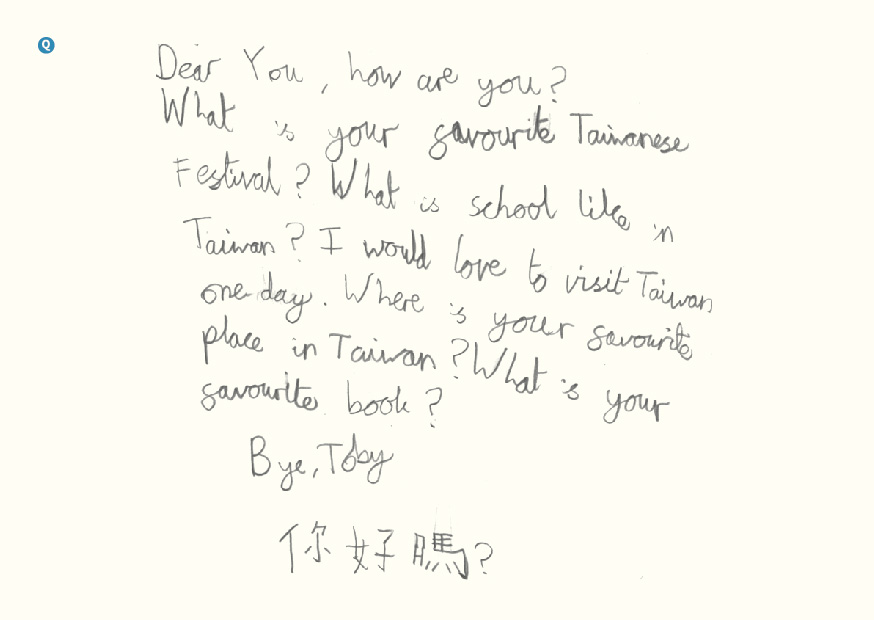 Q
Dear You, how are you?
What is your favourite Taiwanese
Festival? What is school like in
Taiwan? I would love to visit Taiwan
one day. Where is your favourite
place in Taiwan? What is your
favourite book?
Bye, Toby
你好嗎?